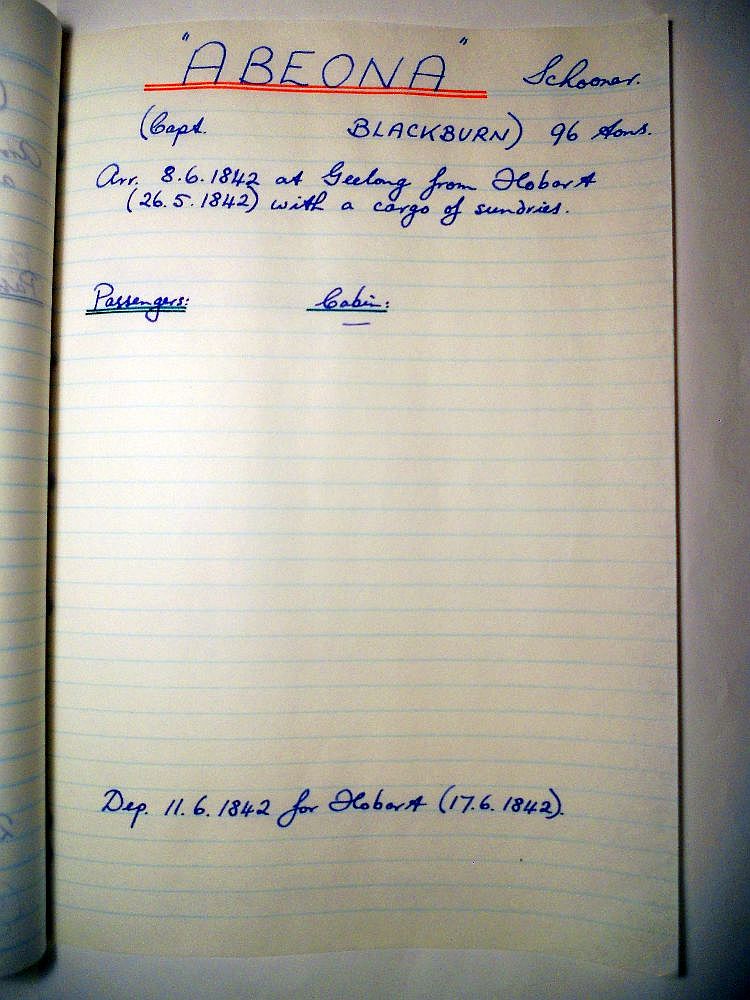 "ABEONA" Schooner.
(Capt. BLACKBURN) 96 tons.
Arr. 8.6.1842 at Geelong from Hobart
(26.5.1842) with a cargo of sundries.
Passengers: Cabin:
Dep. 11.6.1842 for Hobart (17.6.1842).